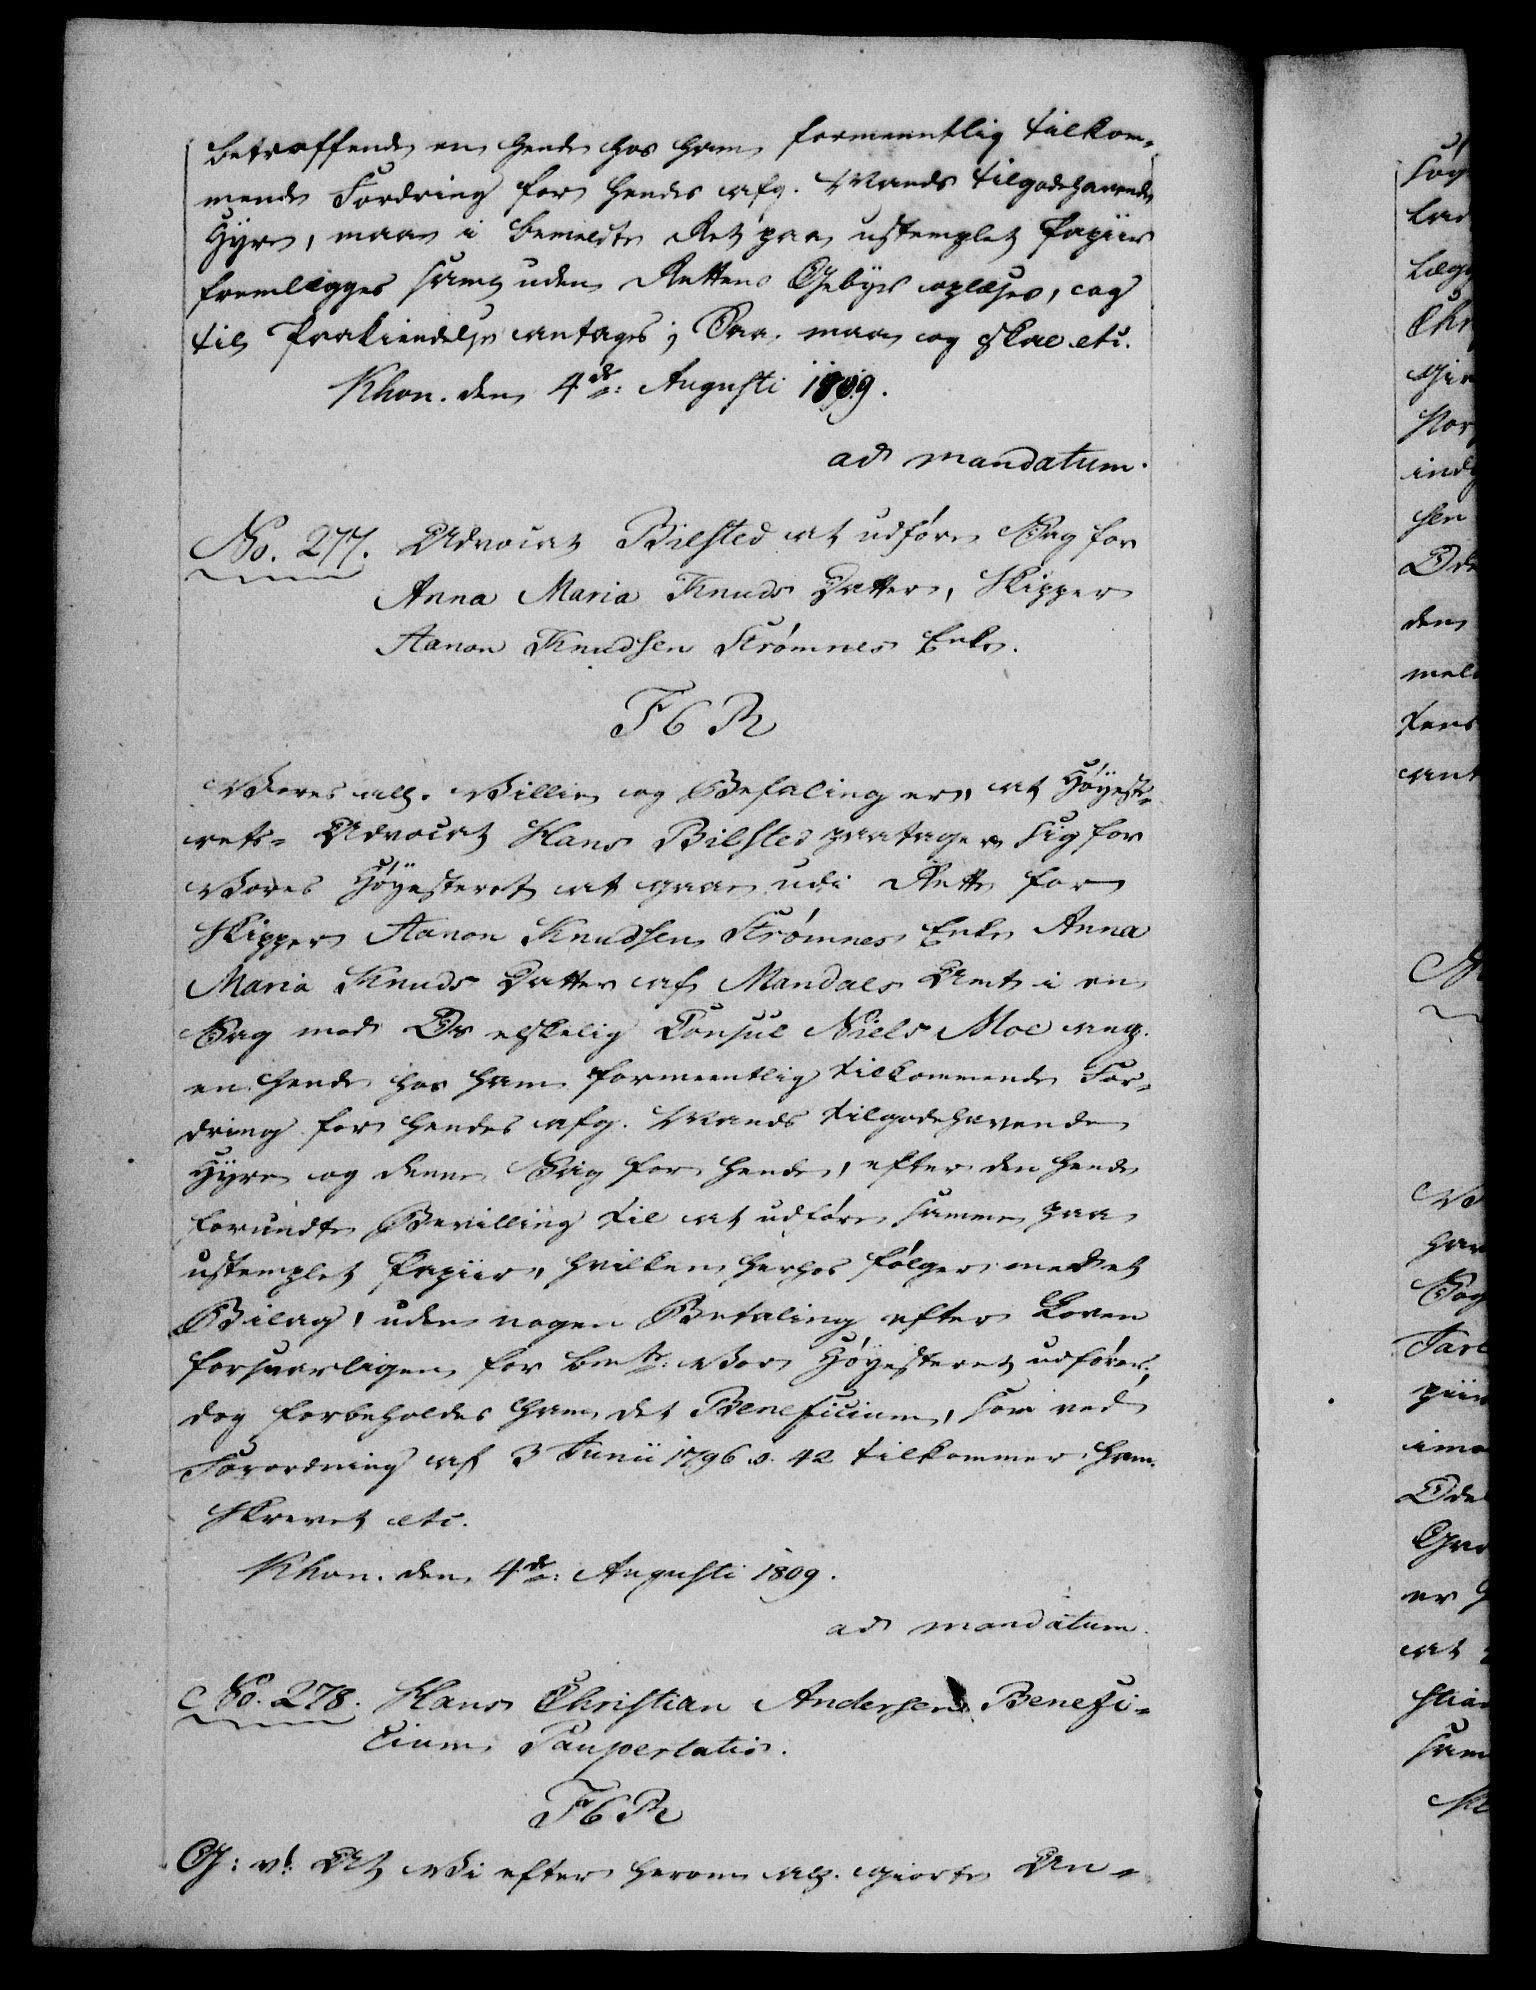 betræffende en hende hos ham formeentlig tilkom-
mende Fordring for hendes afg. Mands tilgodehavende
Hyre, maae i bemeldte Ret paa ustemplet Papiir
fremlægges samt uden Rettens Gebyr oplæses, og
til Paakiendelse antages; Saa maae og skal etc.
Khon. den 4de: Augusti 1809.
ad mandatum.
No. 277. Advocat Bilsted at udføre Sag for
Anna Maria Knuds Datter, Skipper
Aanon Knudsen Strømnes Enke.
F 6 R
Vores allr. Villie og Befaling er, at Høyeste-
rets-Advocat Hans Bilsted paatager sig for
Vores Høyesteret at gaae udi Rette for
Skipper Aanon Knudsen Strømnes Enke Anna
Maria Knuds Datter af Mandals Amt i en
Sag mod Os elskelig Consul Niels Moe ang.
en hende hos ham formeentlig tilkommende For-
dring for hendes afg. Mands tilgodehavende
Hyre og denne Sag for hende, efter den hende
forundte Bevilling til at udføre samme paa
ustemplet Papiir, hvilken herhos følger med et
Bilag, uden nogen Betaling efter Loven
forsvarligen for bmte: Vor Høyesteret udfører;
dog forbeholdes ham det Beneficium, som ved
Forordning af 3 Junii 1796 §. 42 tilkommer ham.
Skrevet etc.
Khon. den 4de: Augusti 1809.
ad mandatum.
No. 278. Hans Christian Andersen Benefi-
cium Paupertatis.
F 6 R
G: v: At Vi efter herom all. giorte An-